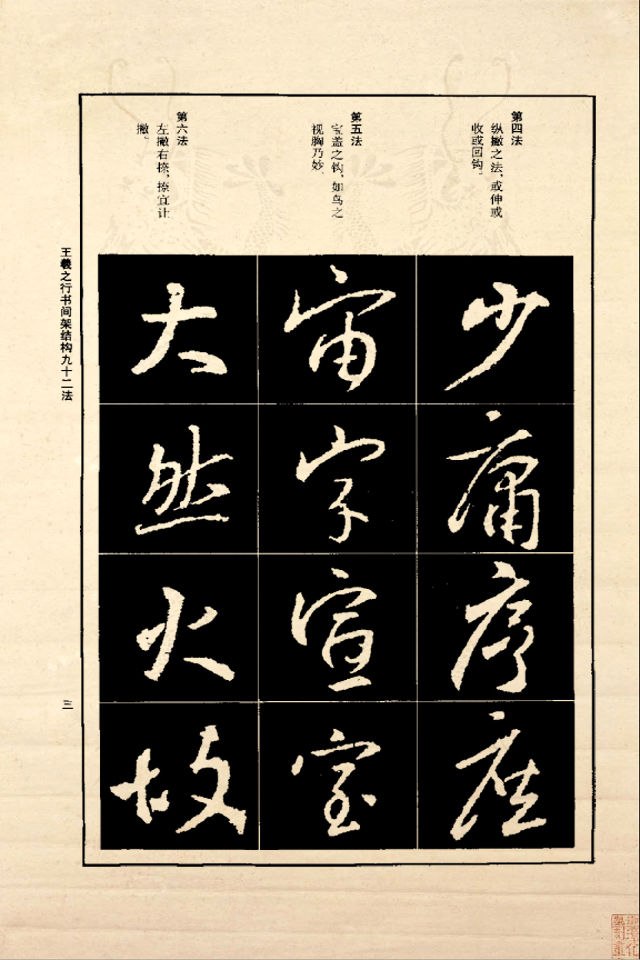 第四法
纵撇之法，或伸或
收或回钩。
第五法
宝盖之钩，如鸟之
视胸乃妙。
第六法
左撇右捺，捺宜让
撇。
少庸序座
宙字宣室
大然火故
王羲之行书间架结构九十二法
三